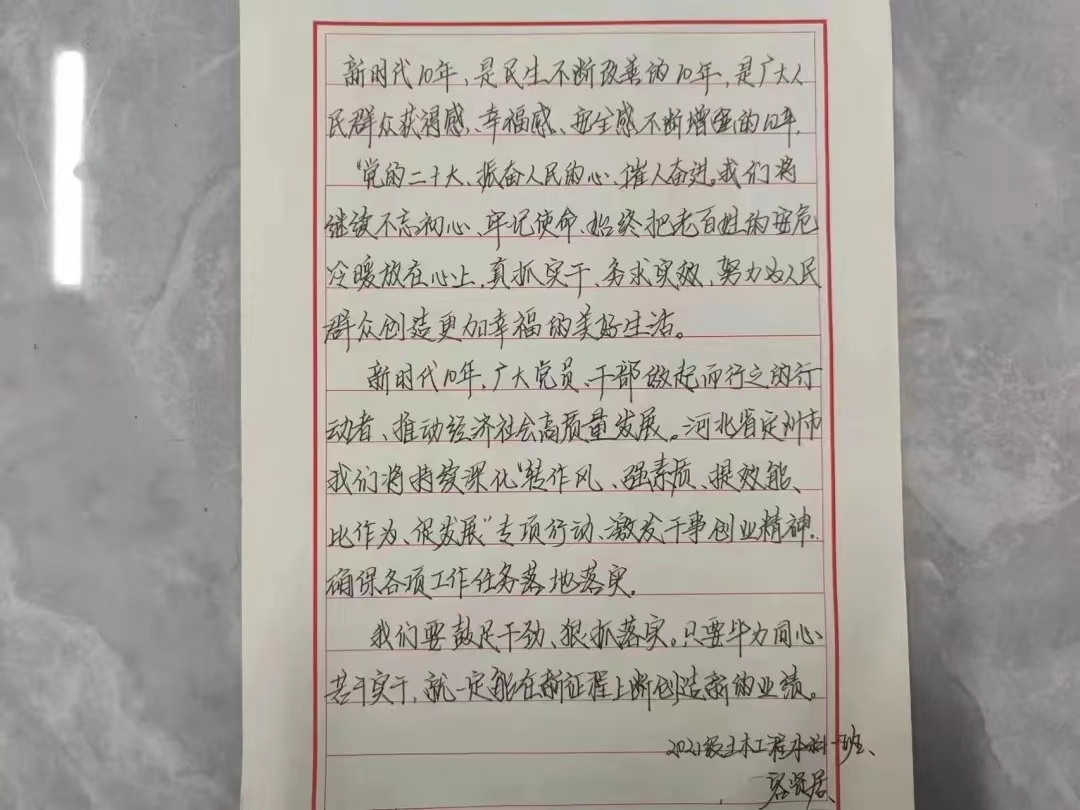 新时代10年，是民生不断改善的10年，是广大人
民群众获得感、幸福感、安全感不断增强的10年，
“党的二十大、振奋人民的心、催人奋进。我们将
继续不忘初心、牢记使命、始终把老百姓的安危
冷暖放在心上，真抓实干、务求实效，努力为人民
群众创造更加幸福的美好生活。
新时代10年，广大党员、干部做起而行之的行
动者、推动经济社会高质量发展。河北省定州市
我们将持续深化“转作风、强素质、提效能、
比作为、促发展”专项行动、激发干事创业精神，
确保各项工作任务落地落实。
我们要鼓足干劲、狠抓落实，只要毕力同心、
苦干实干，就一定能在新征程上断创造新的业绩。
2021级土木工程本科一班、